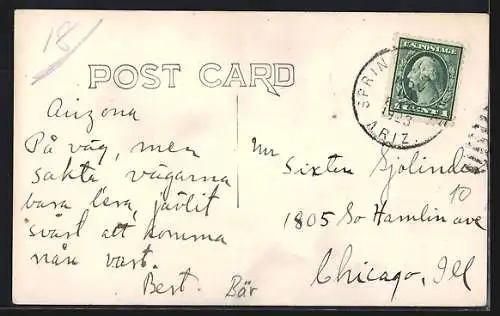 18
POST CARD
U.S. POSTAGE
1 CENT 1
SPRIN
1923
ARIZ.
Arizona
På väg, men
sakta vägarna
bara lera, jävlit
svårt att komma
nån vart.
Best. Bär
Mr Sixten Sjölinde
10
1805 So Hamlin ave
Chicago, Ill